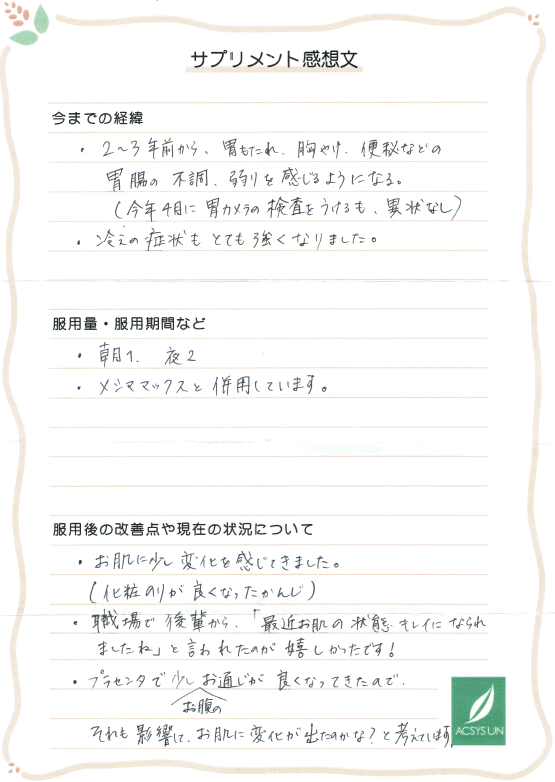 サプリメント感想文
今までの経緯
・2～3年前から、胃もたれ、胸やけ、便秘などの
胃腸の不調、弱りを感じるようになる。
(今年4月に胃カメラの検査をうけるも、異状なし)
・冷えの症状もとても強くなりました。
服用量・服用期間など
・朝1、夜2
・メシママックスと併用しています。
服用後の改善点や現在の状況について
・お肌に少し変化を感じてきました。
(化粧のりが良くなったかんじ)
・職場で後輩から、「最近お肌の状態、キレイになられ
ましたね」と言われたのが嬉しかったです!
・プラセンタで少しお通じが良くなってきたので、
お腹の
それも影響して、お肌に変化が出たのかな?と考えています。
ACSYS UN